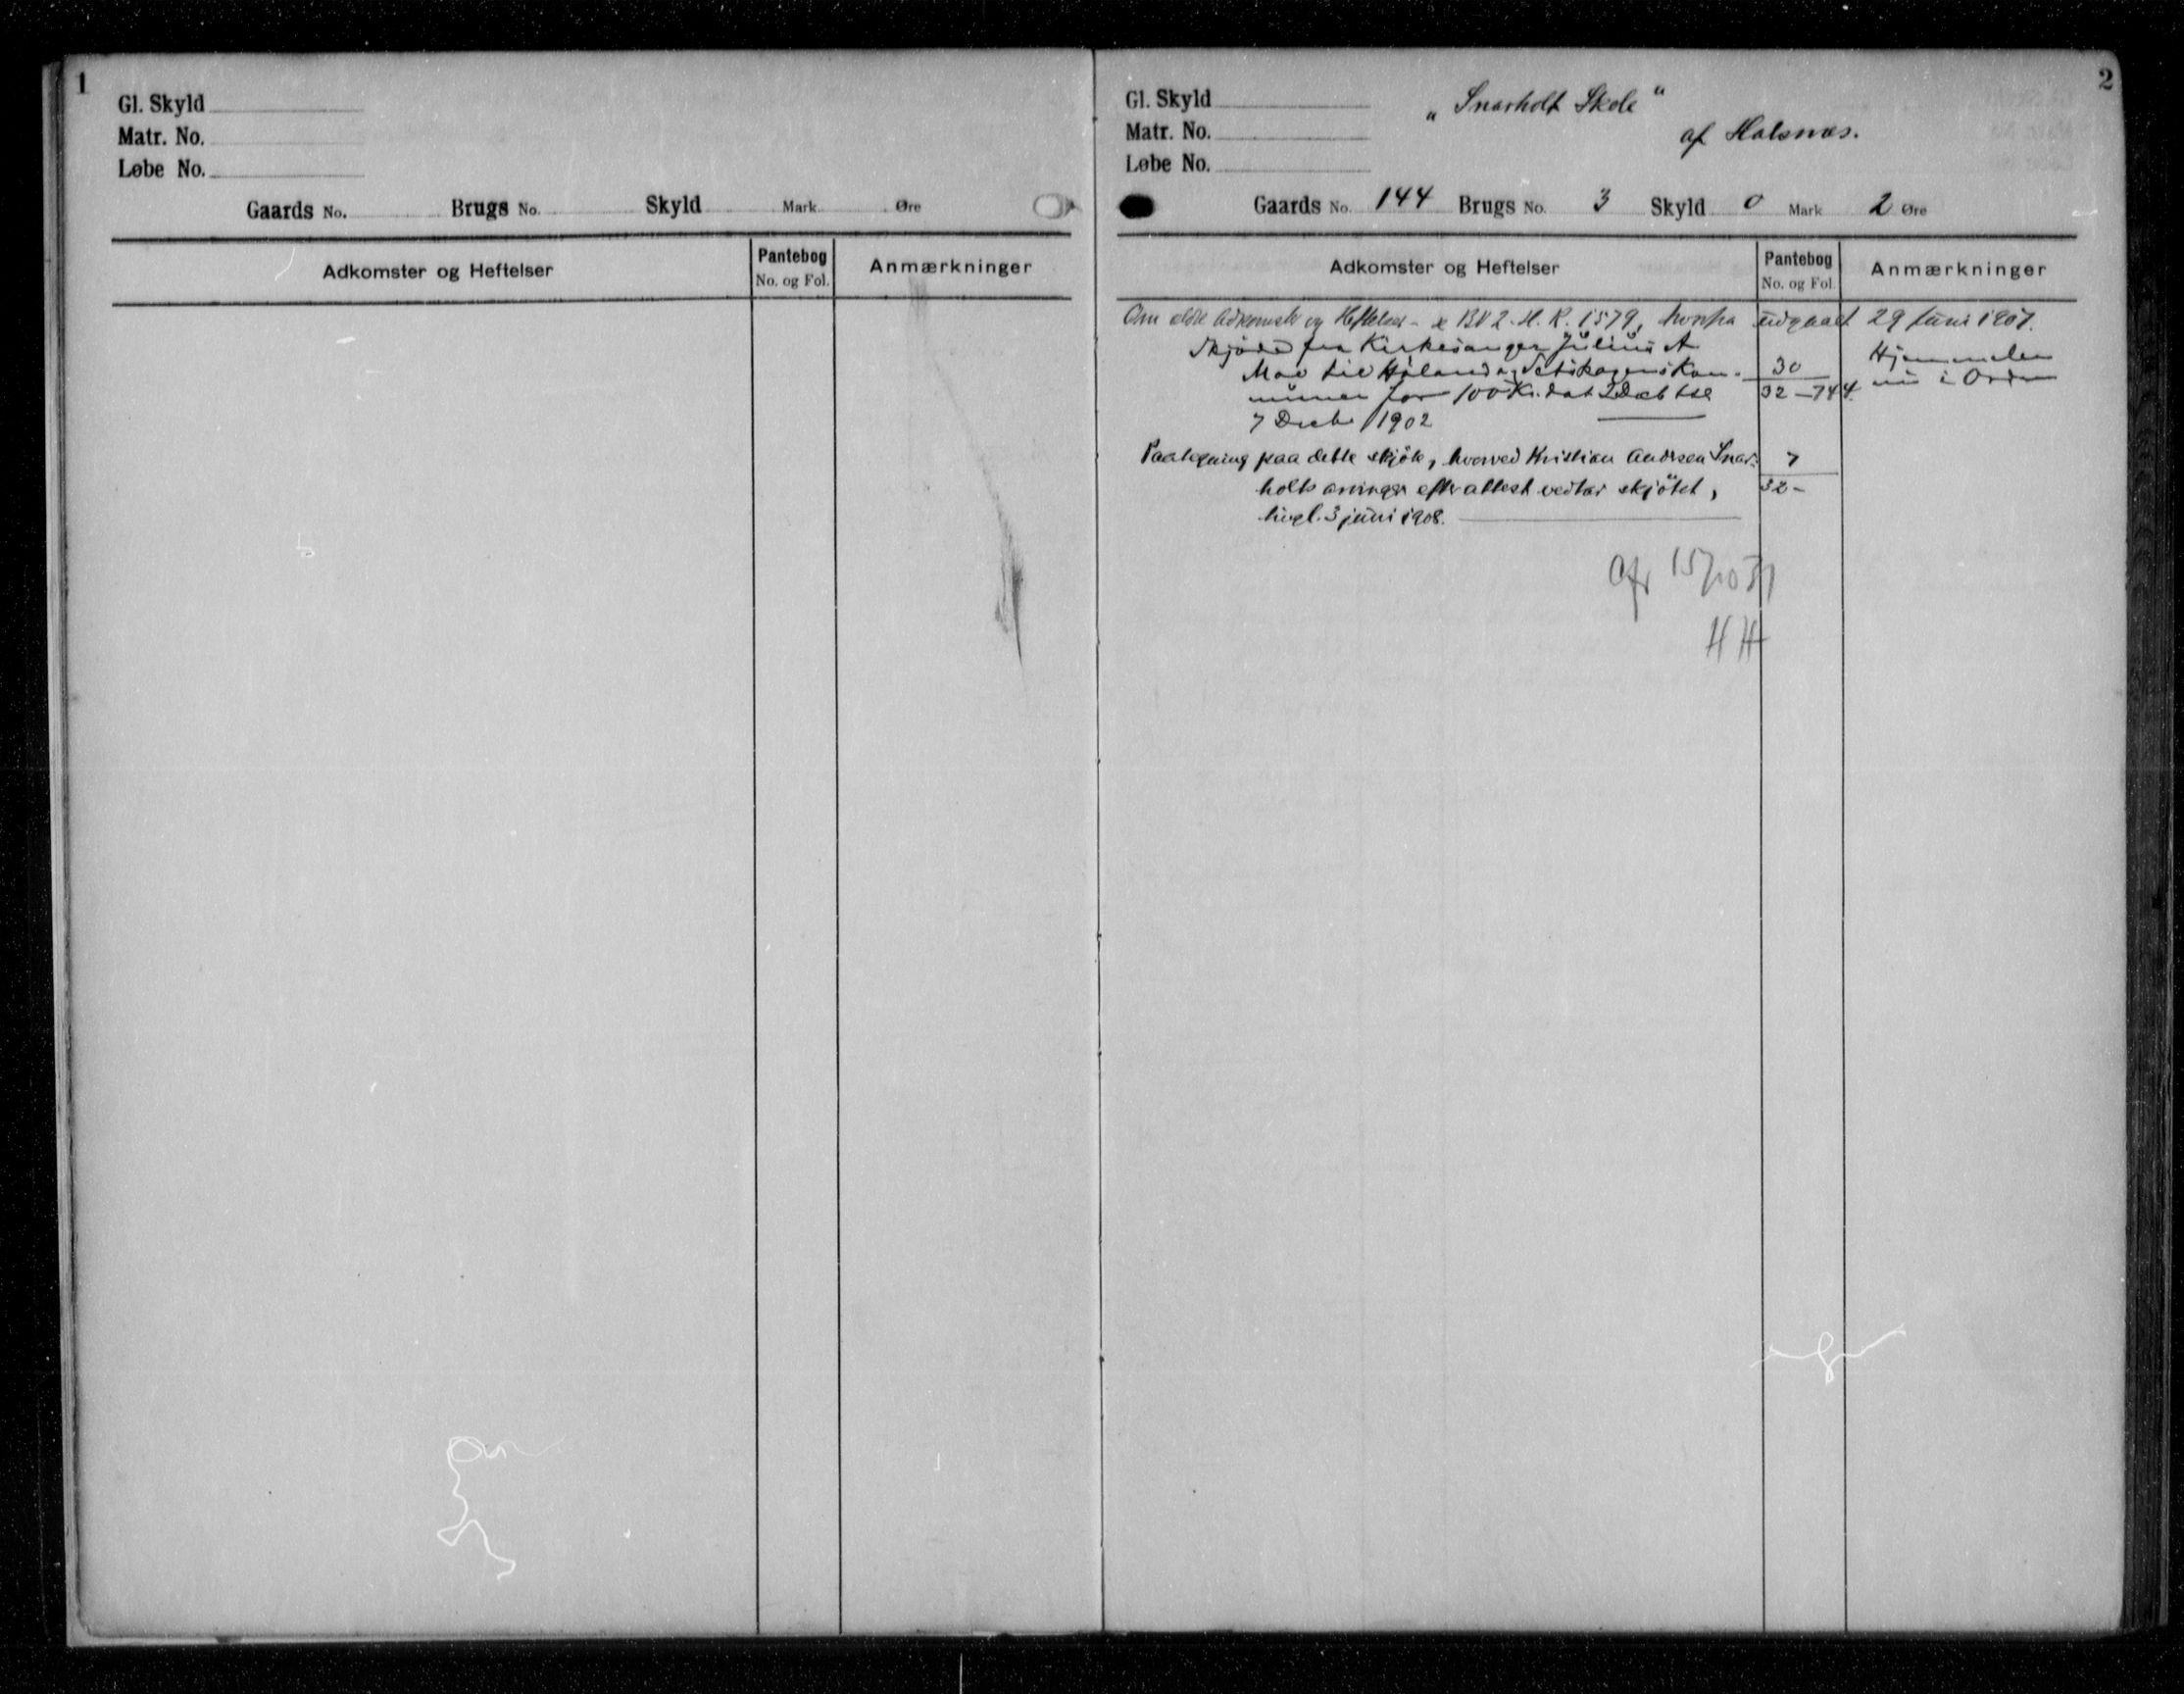 1
Gl. Skyld
Matr. No.
Løbe No.
Gaards No. Brugs No. Skyld Mark Øre
Adkomster og Heftelser
Pantebog
No. og Fol.
Anmærkninger
2
Gl. Skyld
Matr. No.
Løbe No.
„Snarholt Skole"
af Halsnæs.
Gaards No. 144 Brugs No. 3 Skyld 0 Mark 2 Øre
Adkomster og Heftelser
Pantebog
No. og Fol.
Anmærkninger
Om ældre Adkomster og Heftelser - se BV 2. H. R. 1579, hvorfra udgaaet 29 Juni 1907.
Skjøde fra Kirkesanger Julius A
Moe til Høland og Setskogens Kom-
muner for 100 Kr. dat 2 Decb tgl
7 Decbr 1902
30
32 - 744.
Hjemmelen
nu i Orden
Paategning paa dette skjöte, hvorved Kristian Andrsen Snar-
holts arvinger efter attest vedtar skjötet,
tingl. 3 juni 1908.
7
32 -
Afr 15/10 31
HH